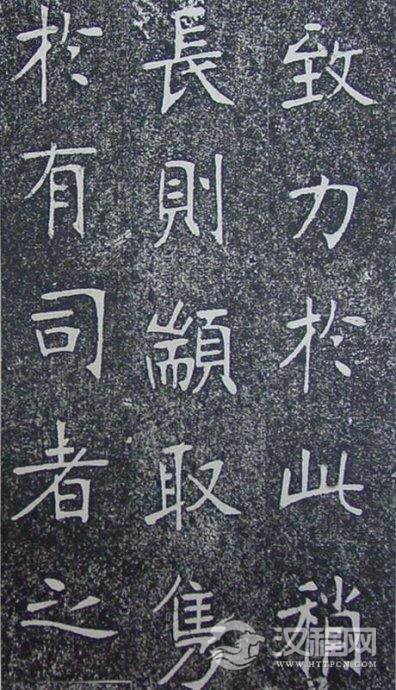 致力於此稍
長則顓取隽
於有司者之
汉程网
WWW.HTTPCN.COM